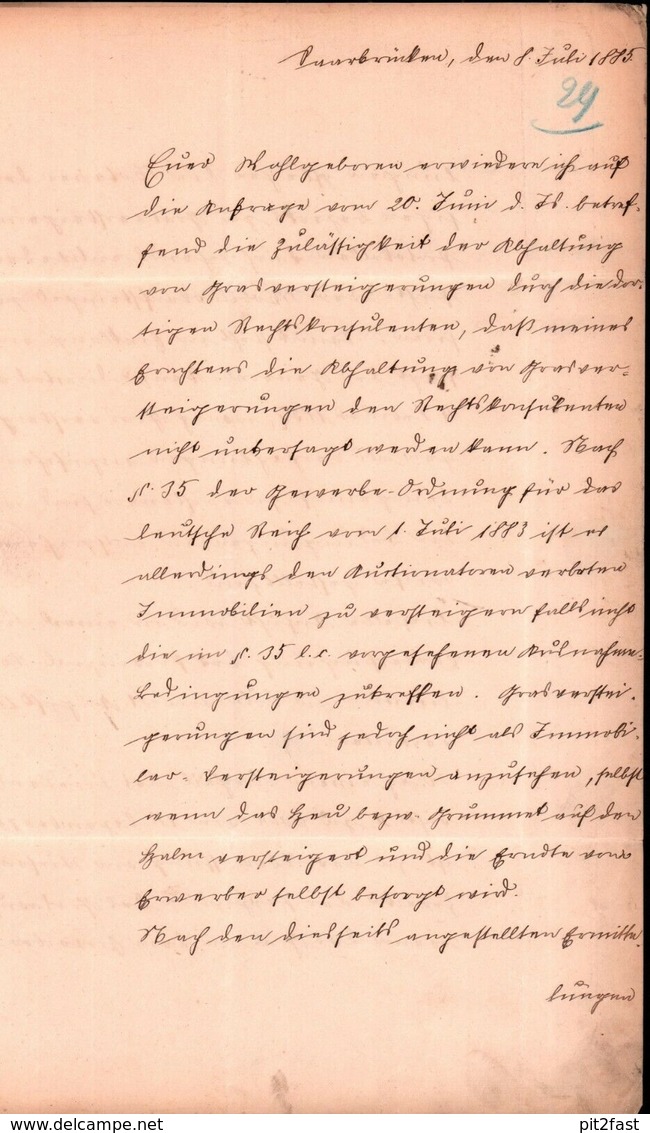 Saarbrücken, den 8. Juli 1885.
24
Euer Wohlgeboren erwiedere ich auf
die Anfrage vom 20. Juni d. Js. betref-
fend die Zulässigkeit der Abhaltung
von Grasversteigerungen durch die dor-
tigen Rechtskonsulenten, daß meines
Erachtens die Abhaltung von Grasver-
steigerungen den Rechtskonsulenten
nicht untersagt werden kann. Nach
§. 35 der Gewerbe-Ordnung für das
deutsche Reich vom 1. Juli 1883 ist es
allerdings den Auctionatoren verboten
Immobilien zu versteigern falls nicht
die im §. 35 l. c. vorgesehenen Ausnahme-
bedingungen zutreffen. Grasverstei-
gerungen sind jedoch nicht als Immobi-
lar-Versteigerungen anzusehen, selbst
wenn das Heu bezw. Grummet auf dem
Halm versteigert und die Erndte vom
Erwerber selbst besorgt wird.
Nach den diesseits angestellten Ermitte-
lungen
pit2fast